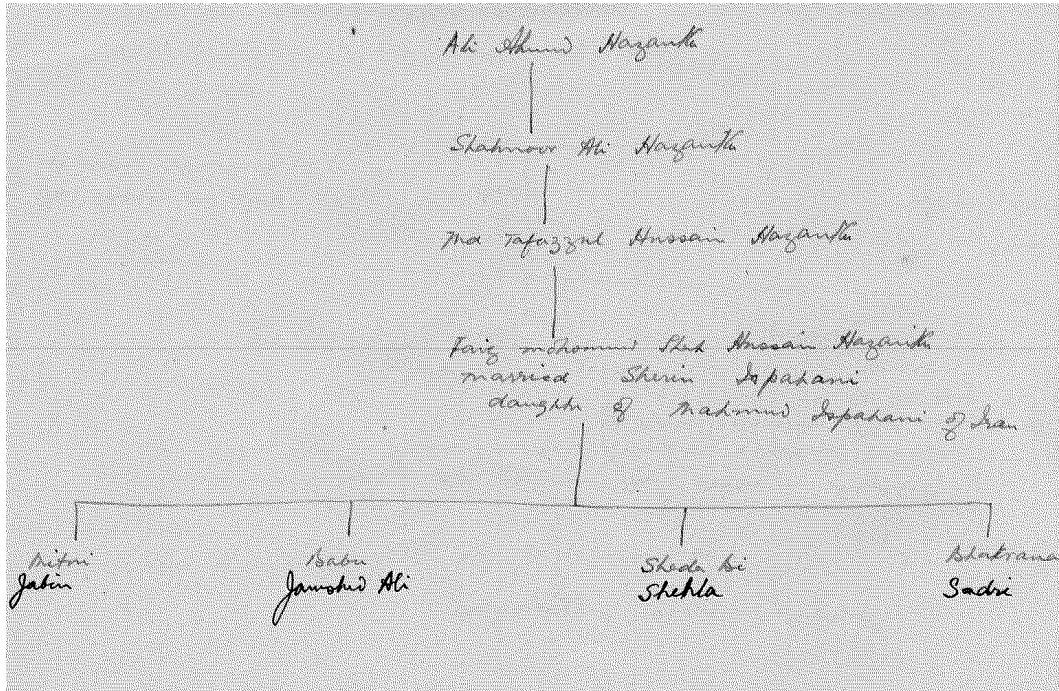 Ali Ahmed Hazarika
Shahnoor Ali Hazarika
Md Tafazzul Hussain Hazarika
Faiz mohommed Shah Hussain Hazarika
married Sherin Ispahani
daughter of Mahmud Ispahani of Iran
Babu
Sheda Bi
Jabin
Jamshid Ali
Shehla
Sadri